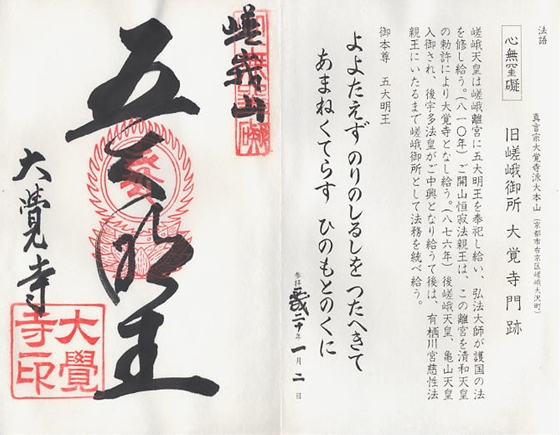 法語
真言宗大覚寺派大本山(京都市右京区嵯峨大沢町)
心無罣礙
旧嵯峨御所 大覚寺門跡
嵯峨天皇は嵯峨離宮に五大明王を奉祀し給い、弘法大師が護国の法
を修し給う。(八一〇年)ご開山恒寂法親王は、この離宮を清和天皇
の勅許により大覚寺となし給う。(八七六年)後嵯峨天皇、亀山天皇
入御され、後宇多法皇がご中興となり給うて後は、有栖川宮慈性法
親王にいたるまで嵯峨御所として法務を統べ給う。
御本尊 五大明王
よよたえず のりのしるしを つたへきて
あまねくてらす ひのもとのくに
二十年 一月 二日
嵯峨山
五大明王
大覺寺
大覺
寺印